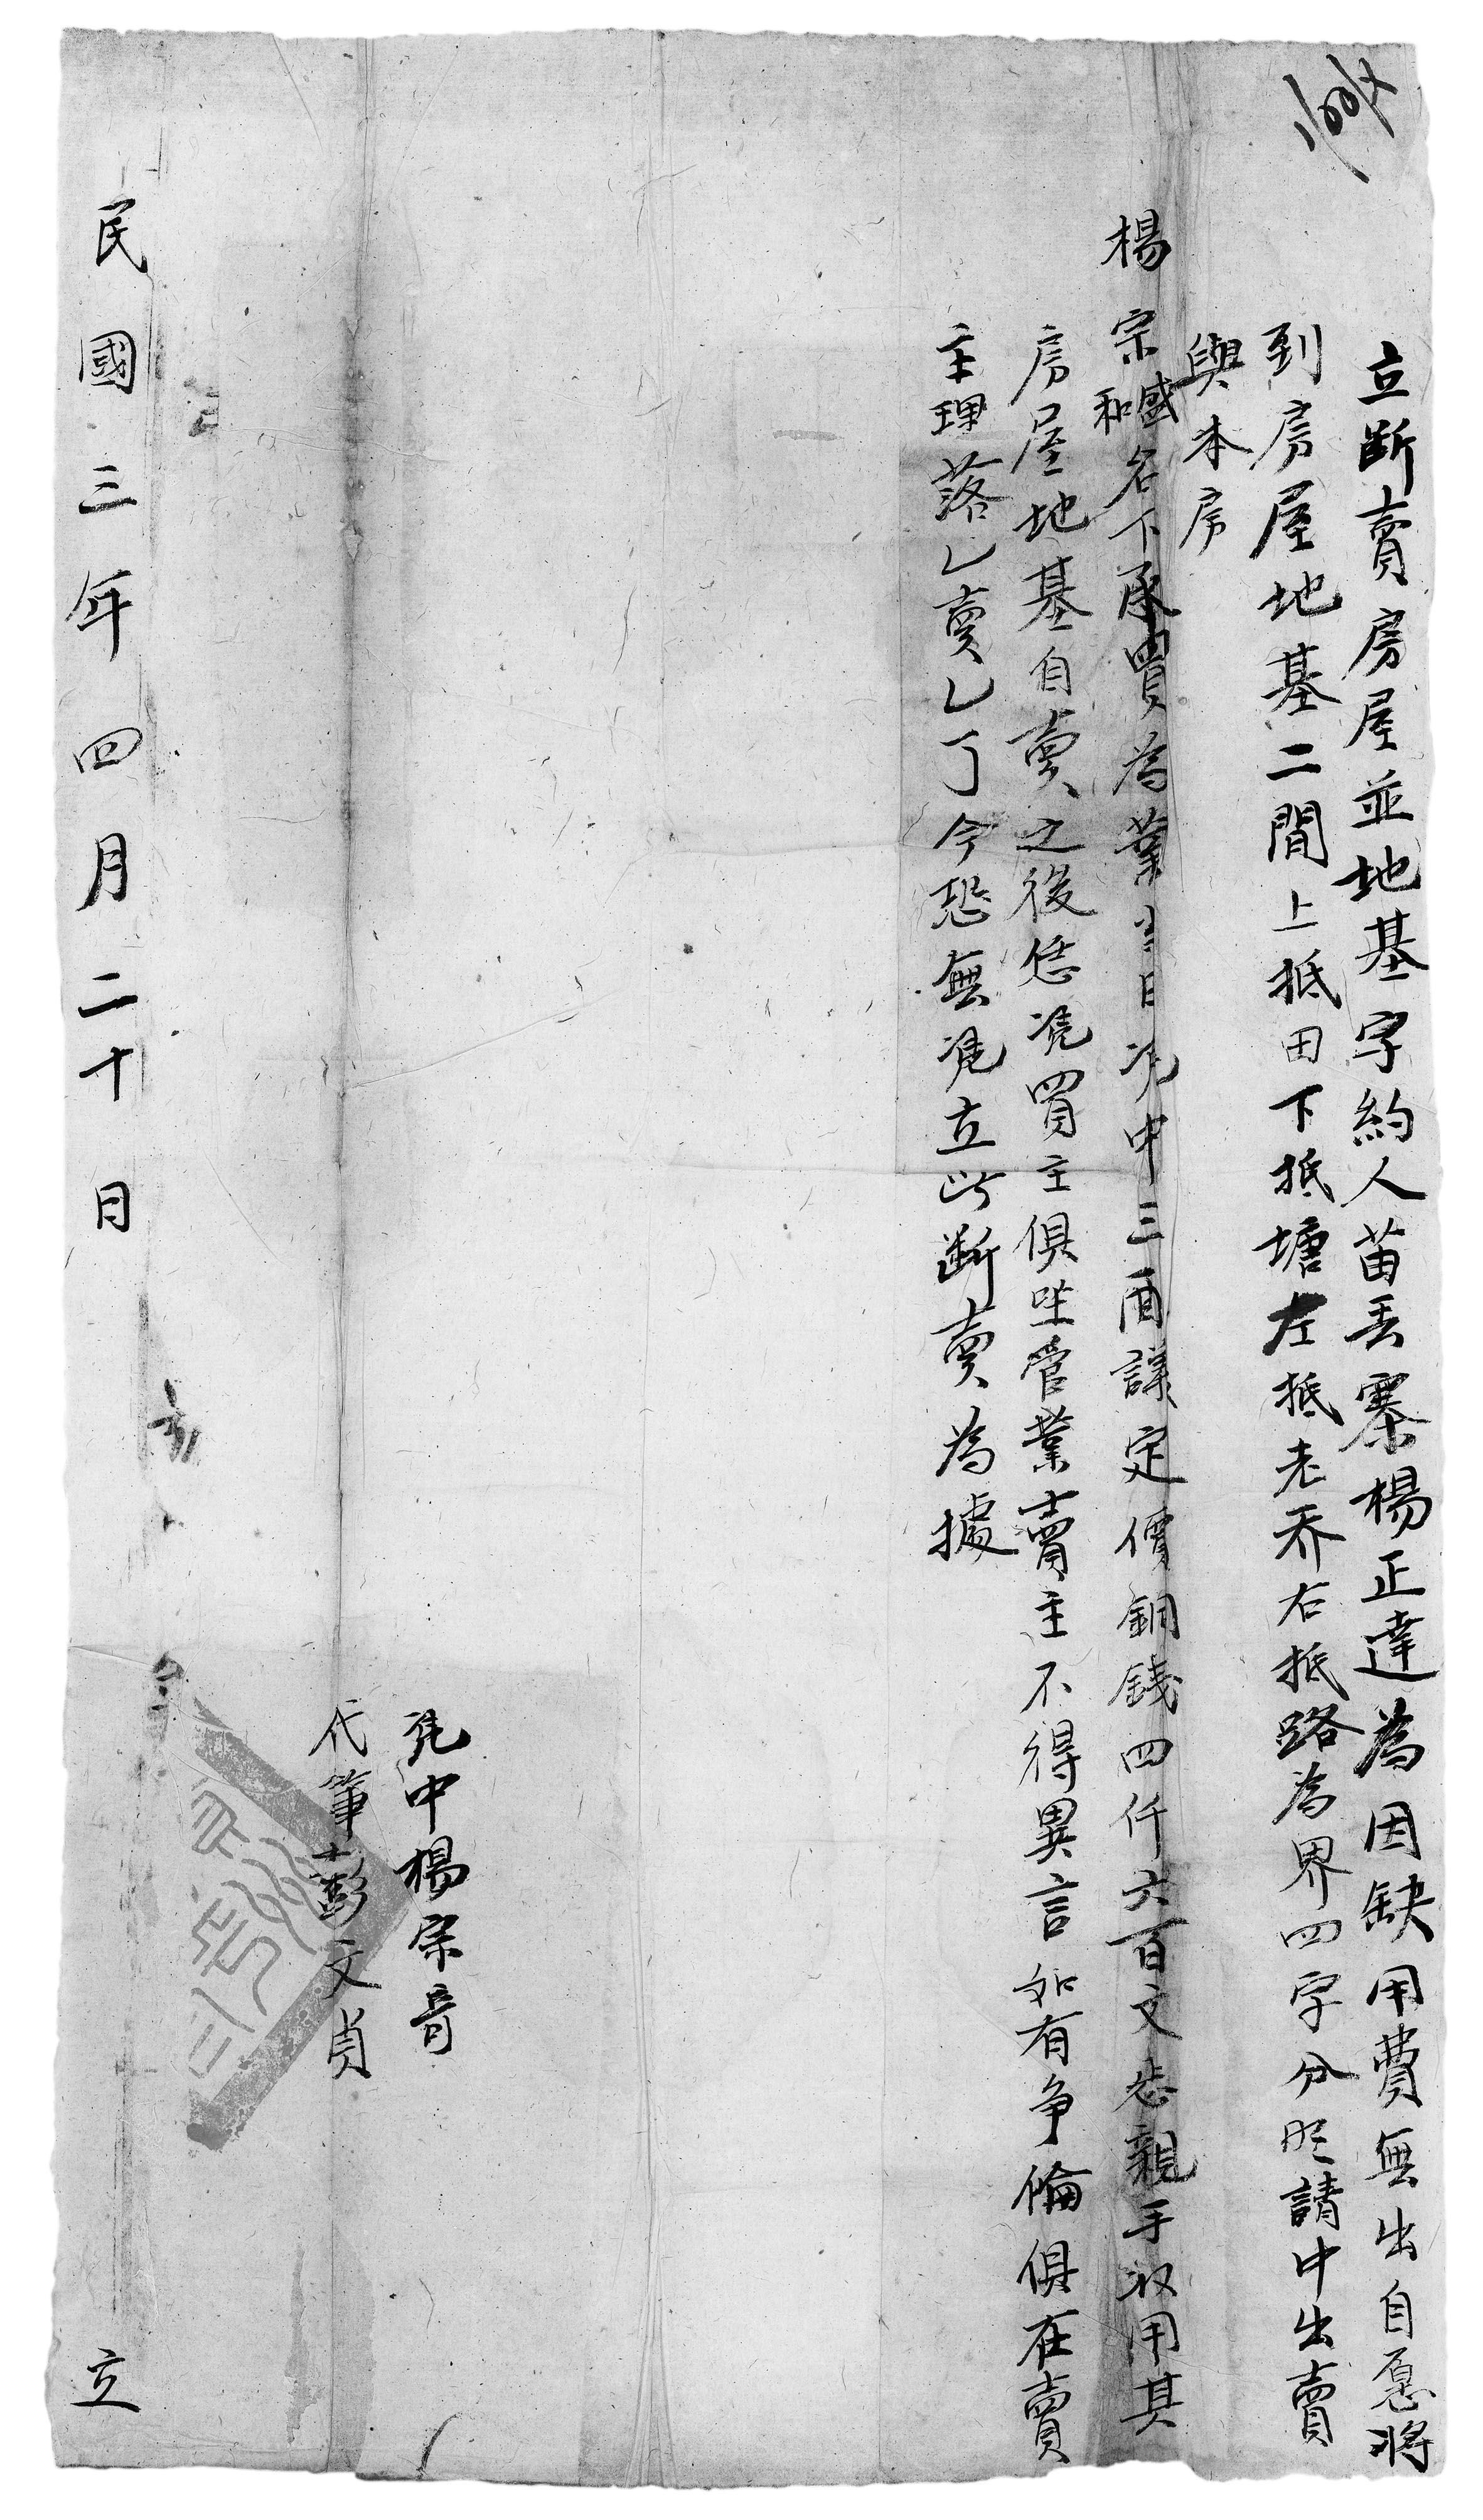 立断賣房屋並地基字約人苗丢寨楊正達為因缺用費無出自愿将
到房屋地基二間上抵田下抵塘左抵老乔右抵路為界四字分明請中出賣
與本房
楊宗盛和名下承買為業當日凴中三面議定價銅錢四仟六百文悉親手収用其
房屋地基自賣之後恁凴買主俱坐管業賣主不得異言如有争倫俱在賣
主理落乚賣乚了今恐無凴立此断賣為據
凴中楊宗音
代筆彭文貞
民國三年四月二十日立